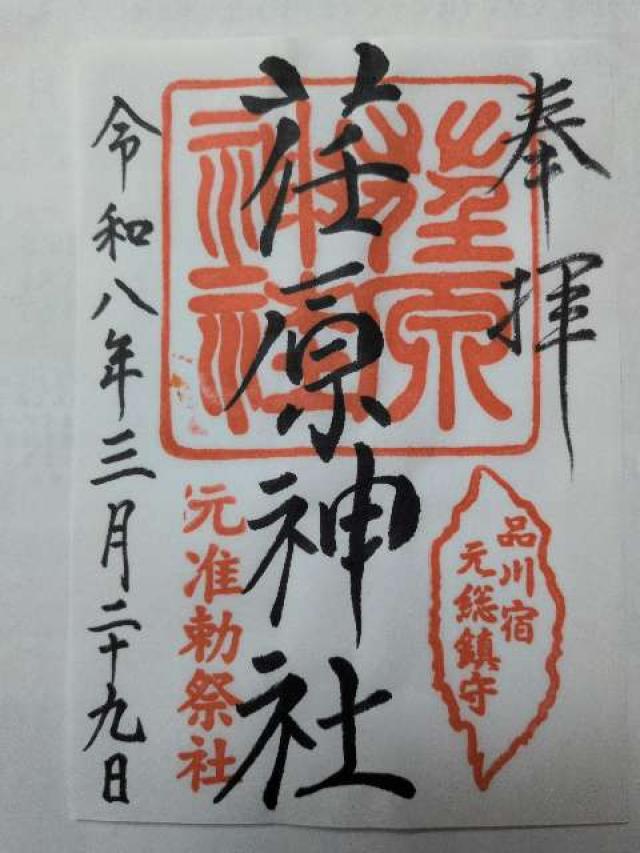 奉拝
荏原神社
荏原神社
品川宿
元総鎮守
元准勅祭社
令和八年三月二十九日